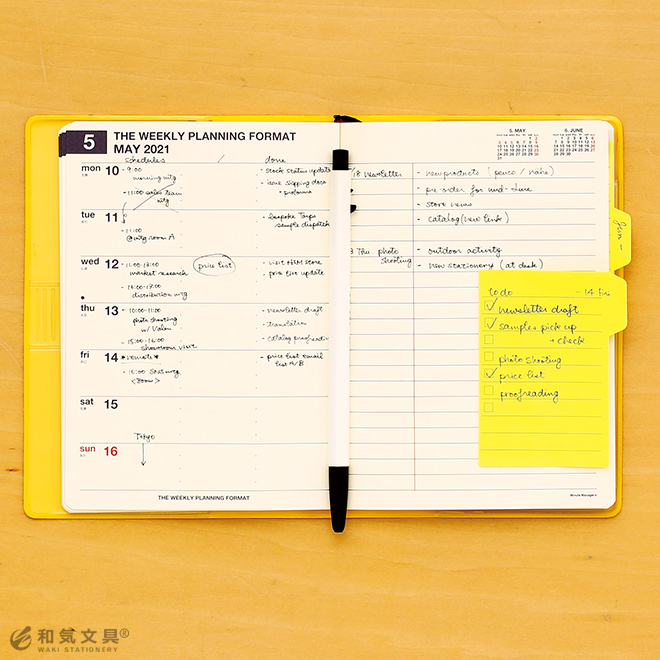 5
THE WEEKLY PLANNING FORMAT
MAY 2021
schedules
done
mon 10
9:00
morning mtg
11:00 sales team
mtg
stock status update
issue shipping docs
+ proforma
tue 11
11:00
@mtg room A
bespoke
sample dispatch
wed 12
11:00-13:00
market research
16:00-17:00
distribution mtg
price list
visit H&M store
price list update
thu 13
10:00-11:00
photo shooting
w/
15:00-16:00
showroom visit
newsletter draft
translation
catalog proofreading
fri 14
*remote*
15:00 mtg
<zoom>
price list email
list A/B
sat 15
sun 16
Tokyo
THE WEEKLY PLANNING FORMAT
5. MAY
6. JUNE
18 newsletter
- new products (
- pre-order for mid-June
- store news
- catalog (new link)
Thu photo
shooting
- outdoor activity
- new stationery (at desk)
to do
- 14 Fri
newsletter draft
samples pick up
+ check
photo shooting
price list
proofreading
和気文具®
WAKI STATIONERY